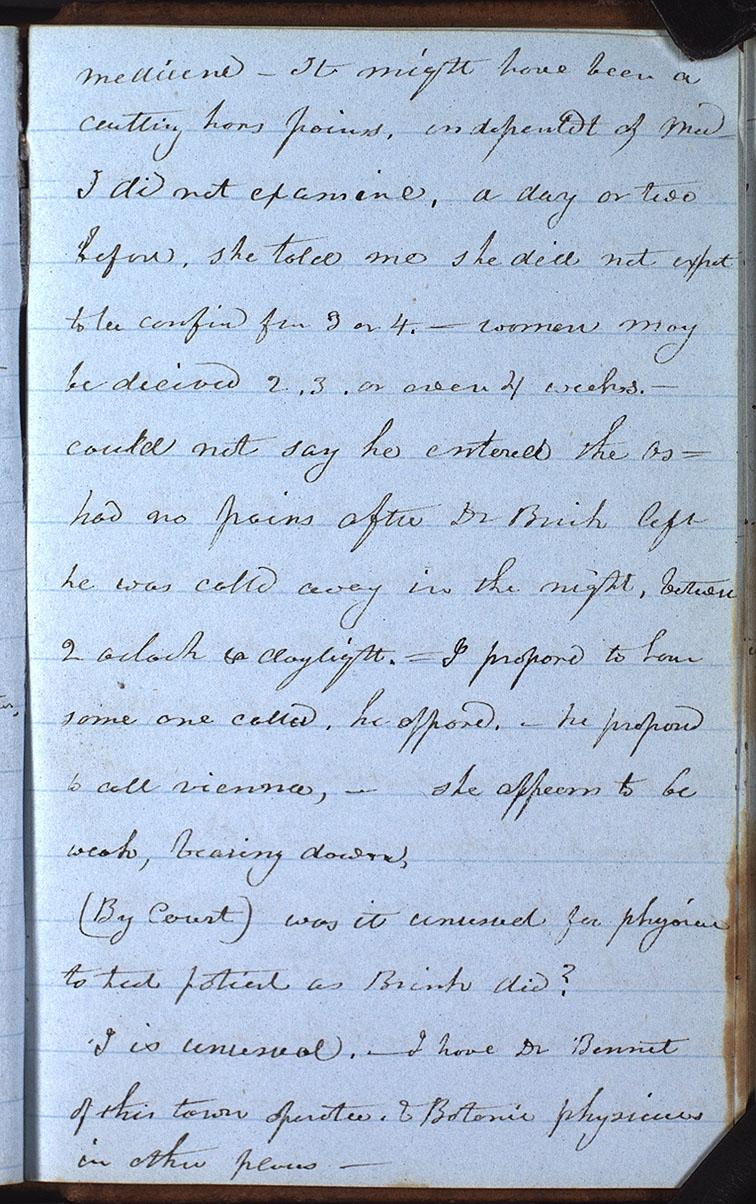 medicine - It might have been a
cutting pains, independt of Med
I did not examine, a day or two
before, she told me she did not expct
to be confind for 3 or 4. - women may
be deceived 2, 3, or even 4 weeks. -
could not say he entered the os =
had no pains after Dr Brink left
he was calld away in the night, between
2 oclock & daylight. = I propord to have
some one called, he oppord. - he propord
to call vienna, - she appears to be
weak, bearing down,
(By Court) was it unusual for physician
to treat patient as Brink did?
I is unusual. - I have Dr Bennet
of this town operate. & Botanic physicians
in other places -